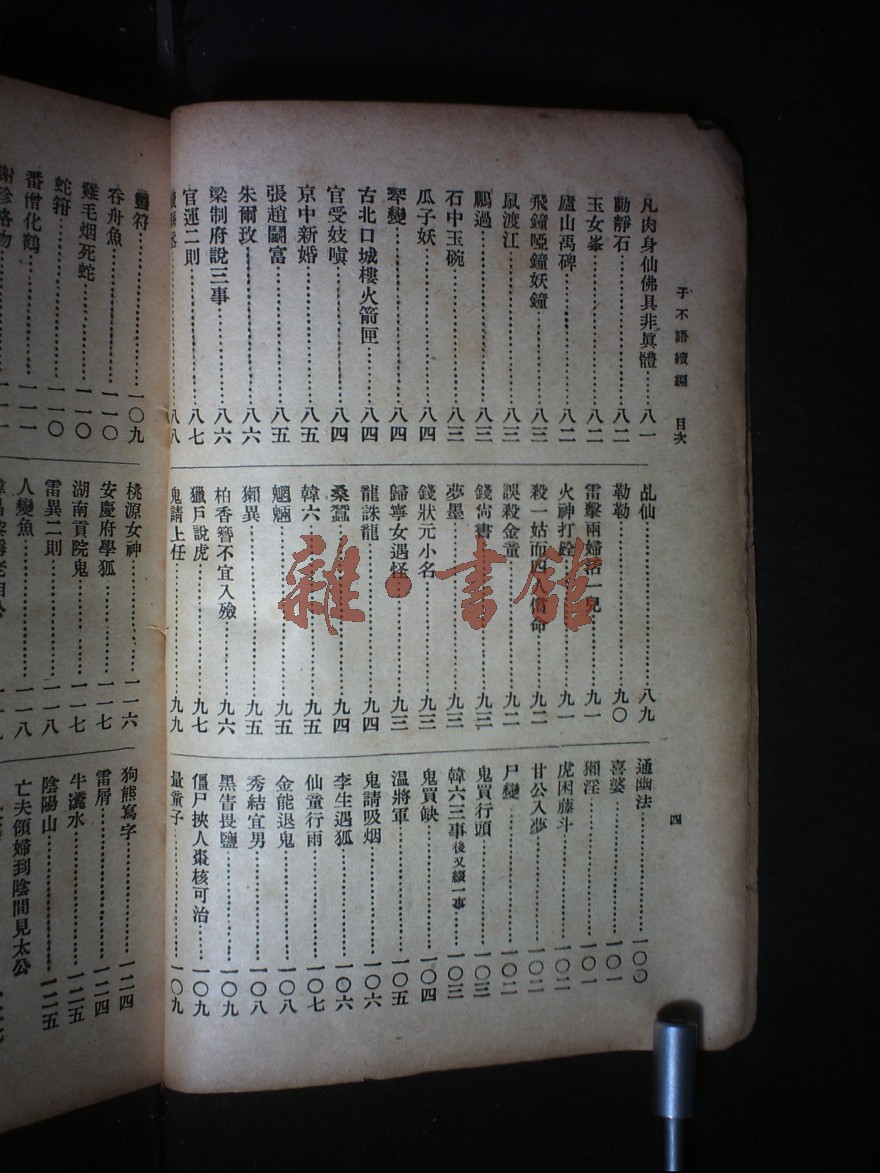 子不語續編 目次
四
凡肉身仙佛具非眞體……八一
動靜石……八二
玉女峯……八二
廬山禹碑……八二
飛鐘啞鐘妖鐘……八三
鼠渡江……八三
鵬過……八三
石中玉碗……八三
瓜子妖……八四
琴變……八四
古北口城樓火箭匣……八四
官受妓嗔……八四
京中新婚……八五
張趙鬭富……八五
朱爾玫……八六
梁制府說三事……八六
官運二則……八七
……八八
乩仙……八九
勒勒……九〇
雷擊兩婦活一兒……九一
火神打銓……九一
殺一姑而四人償命……九二
誤殺金童……九二
錢尙書……九三
夢墨……九三
錢狀元小名……九三
歸寧女遇怪……九三
龍誅龍……九四
桑蠶……九四
韓六……九五
魍魎……九五
獺異……九五
柏香簪不宜入殮……九六
獵戶說虎……九七
鬼請上任……九九
通幽法……一〇〇
喜婆……一〇一
獺淫……一〇一
虎困藤斗……一〇二
甘公入夢……一〇二
尸變……一〇二
鬼買行頭……一〇三
韓六三事後又綴一事……一〇三
鬼買缺……一〇四
溫將軍……一〇五
鬼請吸烟……一〇六
李生遇狐……一〇六
仙童行雨……一〇七
金能退鬼……一〇八
秀結宜男……一〇八
黑眚畏鹽……一〇九
僵尸挾人棗核可治……一〇九
量童子……一〇九
蠱符……一〇九
吞舟魚……一一〇
雞毛烟死蛇……一一〇
蛇箍……一一〇
番僧化鶴……一一一
桃源女神……一一六
安慶府學狐……一一七
湖南貢院鬼……一一七
雷異二則……一一八
人變魚……一一八
狗熊寫字……一二四
雷屑……一二四
牛瀉水……一二五
陰陽山……一二五
亡夫領婦到陰間見太公
雜·書館